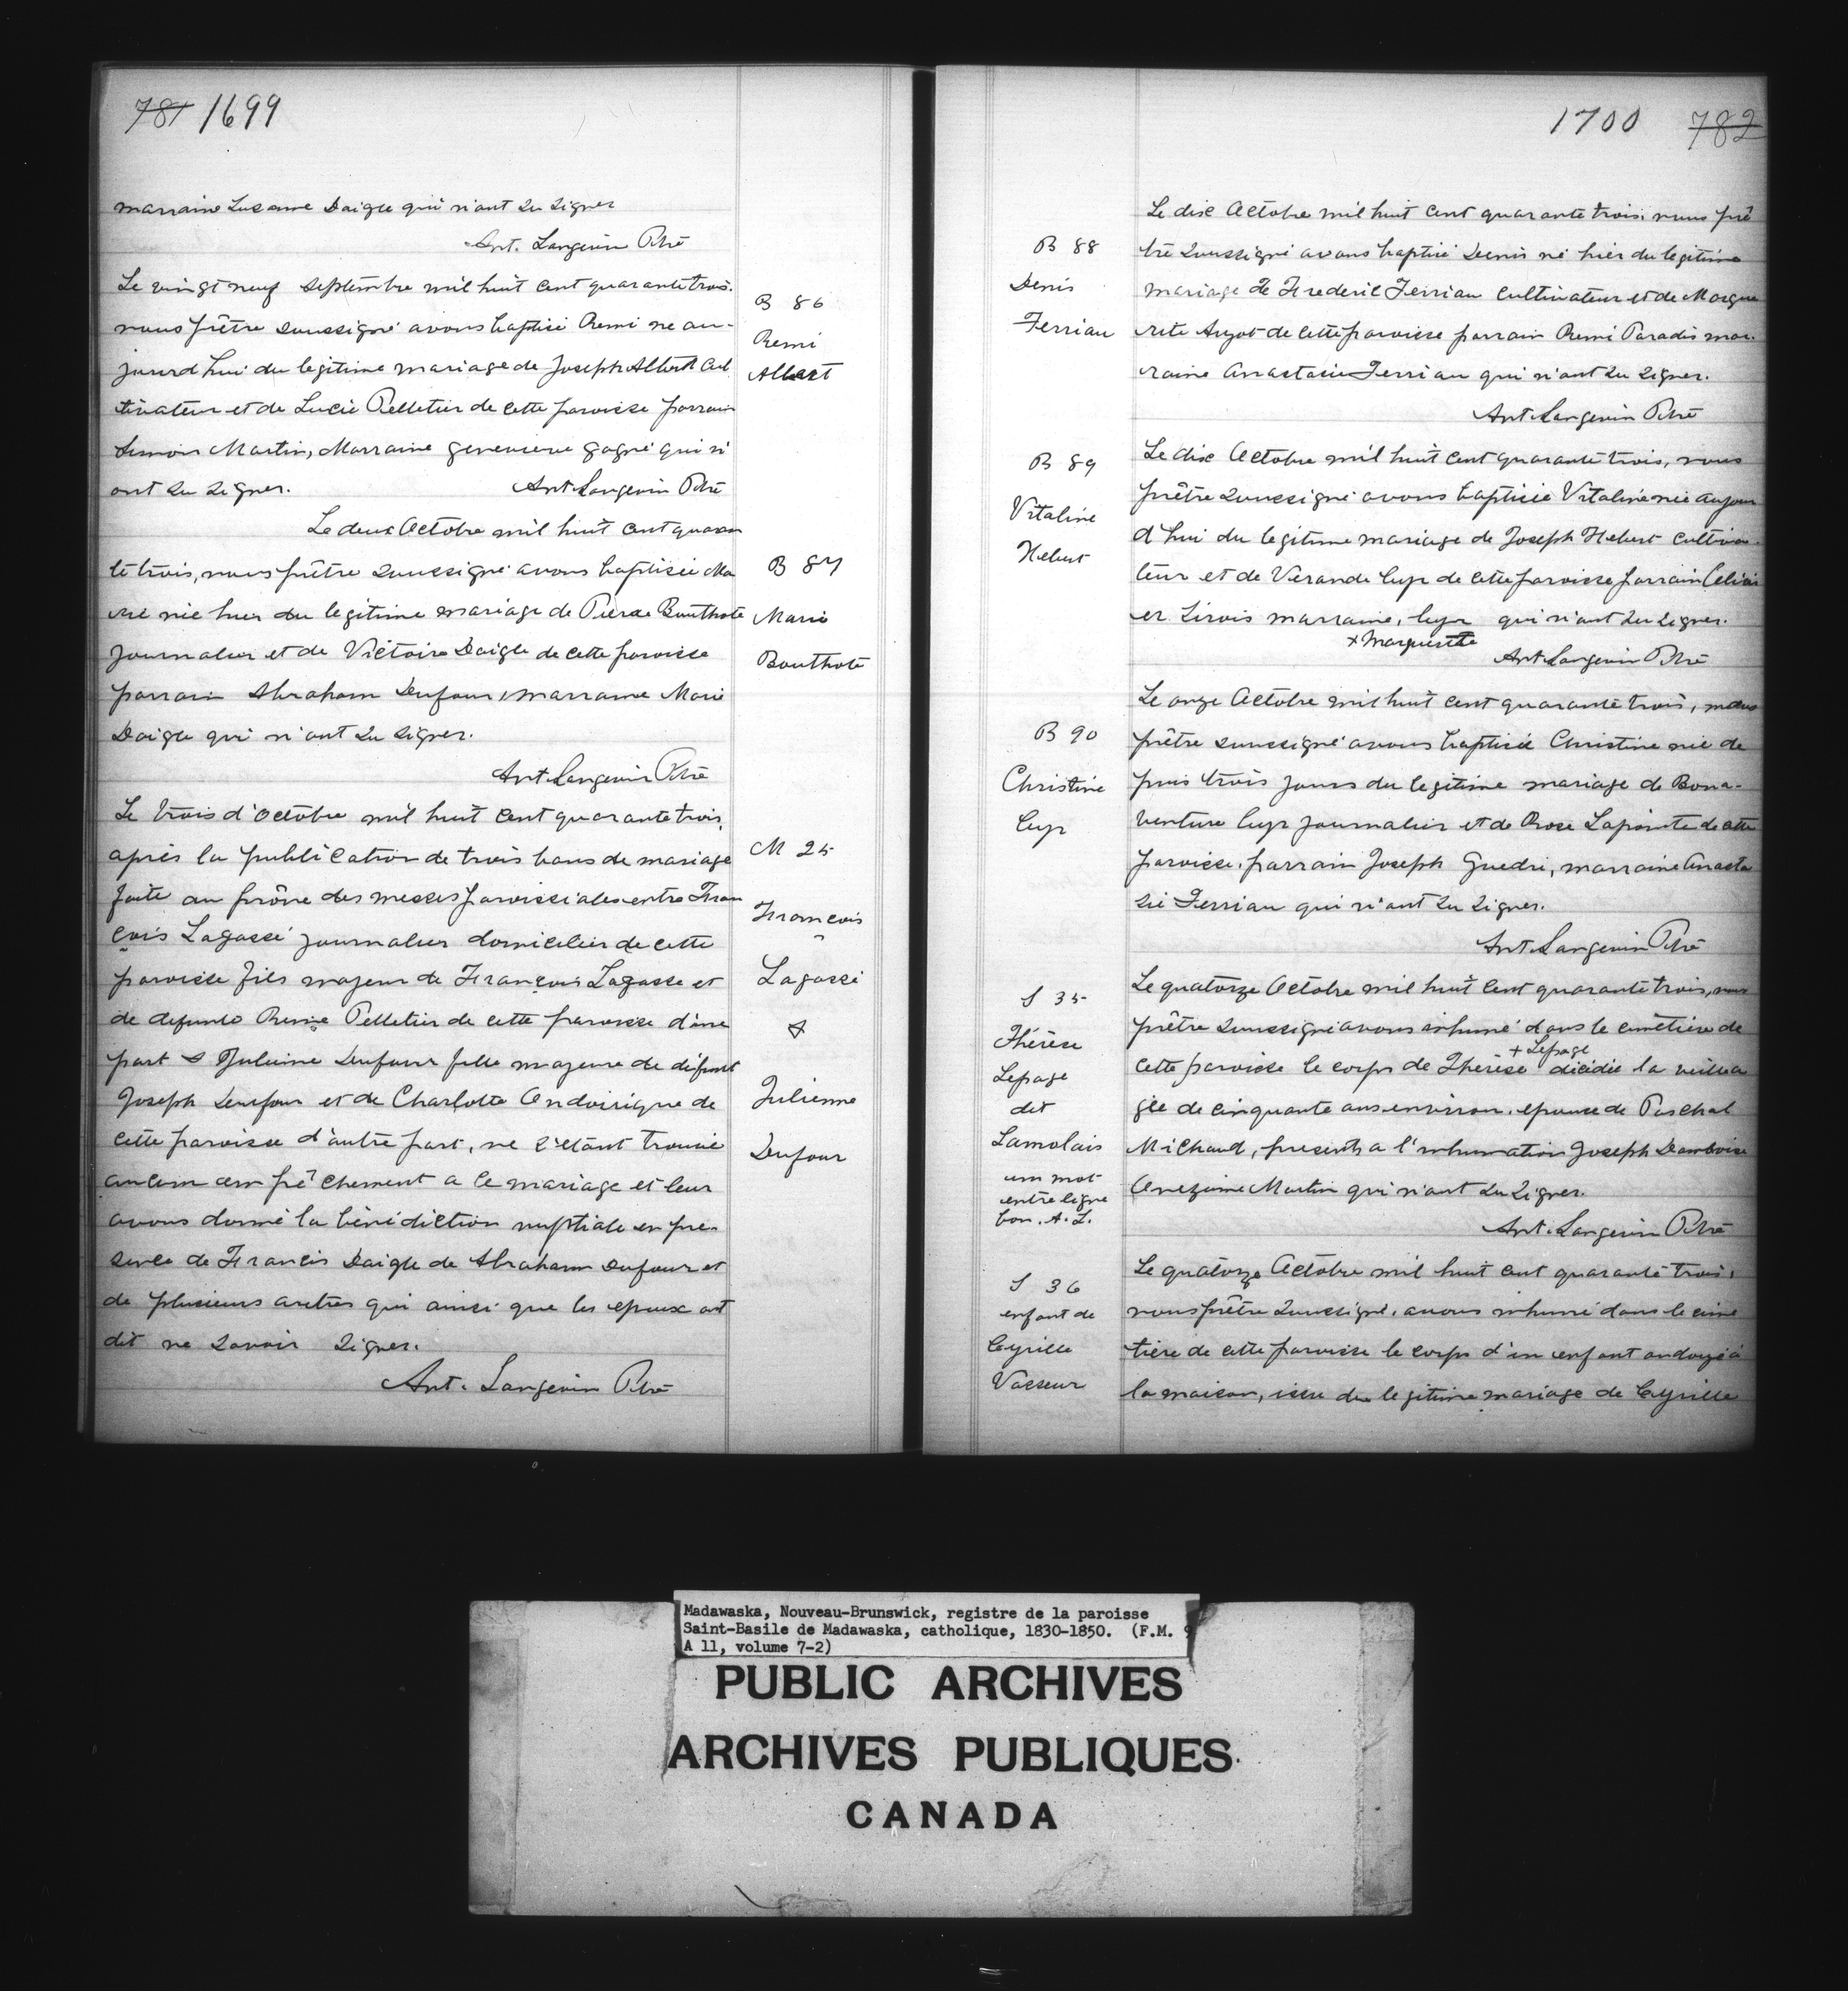 781 1699
marraine Suzanne Daigle qui n'ont su signer
Ant. Langevin Ptre
Le vingt neuf septembre mil huit cent quarante trois.
nous prêtre soussigné avons baptisé Remi né au-
jourd'hui du legitime mariage de Joseph Albert cul
tivateur et de Lucie Pelletier de cette paroisse parrain
Simon Martin, Marraine genevieve gagné qui n'
ont su signer. Ant. Langevin Ptre
B 86
Remi
Albert
Le deux Octobre mil huit cent quaran
te trois, nous prêtre soussigné avons baptisée Ma
rie née hier du legitime mariage de Pierre Bouthote
journalier et de Victoire Daigle de cette paroisse
parrain Abraham Dufour, marraine Marie
Daigle qui n'ont su signer.
Ant. Langevin Ptre
B 87
Marie
Bouthote
Le trois d'octobre mil huit cent quarante trois,
après la publication de trois bans de mariage
faite au prône des messes paroissiales entre Fran
çois Lagassé journalier domicilier de cette
paroisse fils majeur de François Lagasse et
de defunte Reine Pelletier de cette paroisse d'une
part & Julienne Dufour fille majeure de défunt
Joseph Dufour et de Charlotte Andoirigne de
cette paroisse d'autre part, ne s'étant trouvé
aucun empêchement a ce mariage et leur
avons donné la bénédiction nuptiale en pre-
sence de Francis Daigle de Abraham Dufour et
de plusieurs autres qui ainsi que les epoux ont
dit ne savoir signer.
Ant. Langevin Ptre
M 25
François
Lagassé
&
Julienne
Dufour
1700 782
B 88
Denis
Terriau
Le dix Octobre mil huit cent quarante trois, nous prê
tre soussigné avons baptisé Denis né hier du legitime
mariage de Frederic Terriau cultivateur et de Margue
rite Ayot de cette paroisse parrain Remi Paradis mar-
raine Anastasie Terriau qui n'ont su signer.
Ant. Langevin Ptre
B 89
Vitaline
Hebert
Le dix Octobre mil huit cent quarante trois, nous
prêtre soussigné avons baptisée Vitaline née aujour
d'hui du legitime mariage de Joseph Hebert cultiva-
teur et de Verande Cyr de cette paroisse parrain
er Sirois marraine, Cyr qui n'ont su signer.
x Marguerite
Ant. Langevin Ptre
B 90
Christine
Cyr
Le onze Octobre mil huit cent quarante trois, nous
prêtre soussigné avons baptisée Christine née de
puis trois jours du legitime mariage de Bona-
venture Cyr journalier et de Rose Lapointe de cette
paroisse, parrain Joseph Guedri, marraine Anasta
sie Terriau qui n'ont su signer.
Ant. Langevin Ptre
S 35
Thérèse
Lepage
dit
Lamolais
un mot
entre ligne
bon. A. L.
Le quatorze Octobre mil huit cent quarante trois, nous
prêtre soussigné avons inhumé dans le cimetière de
+ Lepage
cette paroisse le corps de Thérèse décédée la veille a
gée de cinquante ans environ, epouse de Paschal
Michaud, presents a l'inhumation Joseph Damboise
Onezime Martin qui n'ont su signer.
Ant. Langevin Ptre
S 36
enfant de
Cyrille
Vasseur
Le quatorze Octobre mil huit cent quarante trois,
nous prêtre soussigné, avons inhumé dans le cime
tière de cette paroisse le corps d'un enfant ondoyé à
la maison, issu du legitime mariage de Cyrille
Madawaska, Nouveau-Brunswick, registre de la paroisse
Saint-Basile de Madawaska, catholique, 1830-1850. (F.M. 9
A 11, volume 7-2)
PUBLIC ARCHIVES
ARCHIVES PUBLIQUES
CANADA